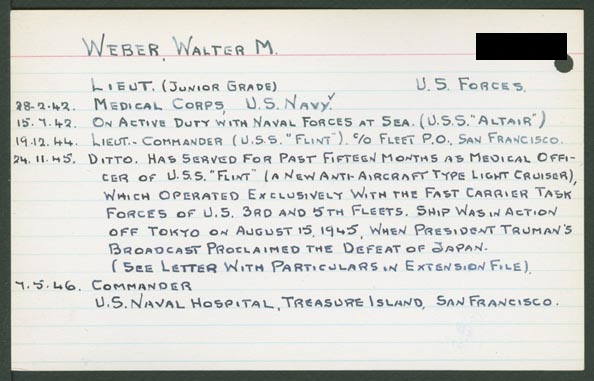 WEBER, WALTER M.
LIEUT. (JUNIOR GRADE) U.S. FORCES.
28-2-42. MEDICAL CORPS, U.S. NAVY.
15.7.42. ON ACTIVE DUTY WITH NAVAL FORCES AT SEA. (U.S.S. "ALTAIR")
19.12.44. LIEUT.-COMMANDER (U.S.S. "FLINT"). C/O FLEET P.O., SAN FRANCISCO.
24.11.45. DITTO. HAS SERVED FOR PAST FIFTEEN MONTHS AS MEDICAL OFFI-
CER OF U.S.S. "FLINT" (A NEW ANTI-AIRCRAFT TYPE LIGHT CRUISER),
WHICH OPERATED EXCLUSIVELY WITH THE FAST CARRIER TASK
FORCES OF U.S. 3RD AND 5TH FLEETS. SHIP WAS IN ACTION
OFF TOKYO ON AUGUST 15, 1945, WHEN PRESIDENT TRUMAN'S
BROADCAST PROCLAIMED THE DEFEAT OF JAPAN.
(SEE LETTER WITH PARTICULARS IN EXTENSION FILE).
7.5.46. COMMANDER
U.S. NAVAL HOSPITAL, TREASURE ISLAND, SAN FRANCISCO.